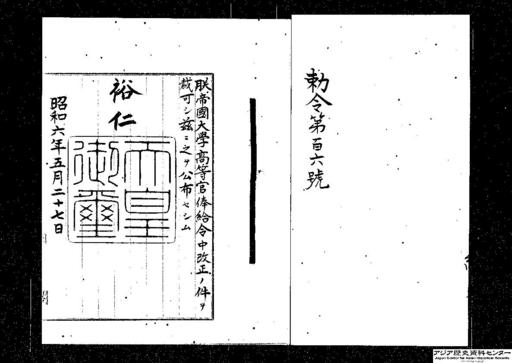 勅令第百六號
朕帝國大學高等官俸給令中改正ノ件ヲ
裁可シ茲ニ之ヲ公布セシム
裕仁
天皇御璽
昭和六年五月二十七日
アジア歴史資料センター
Japan Center for Asian Historical Records